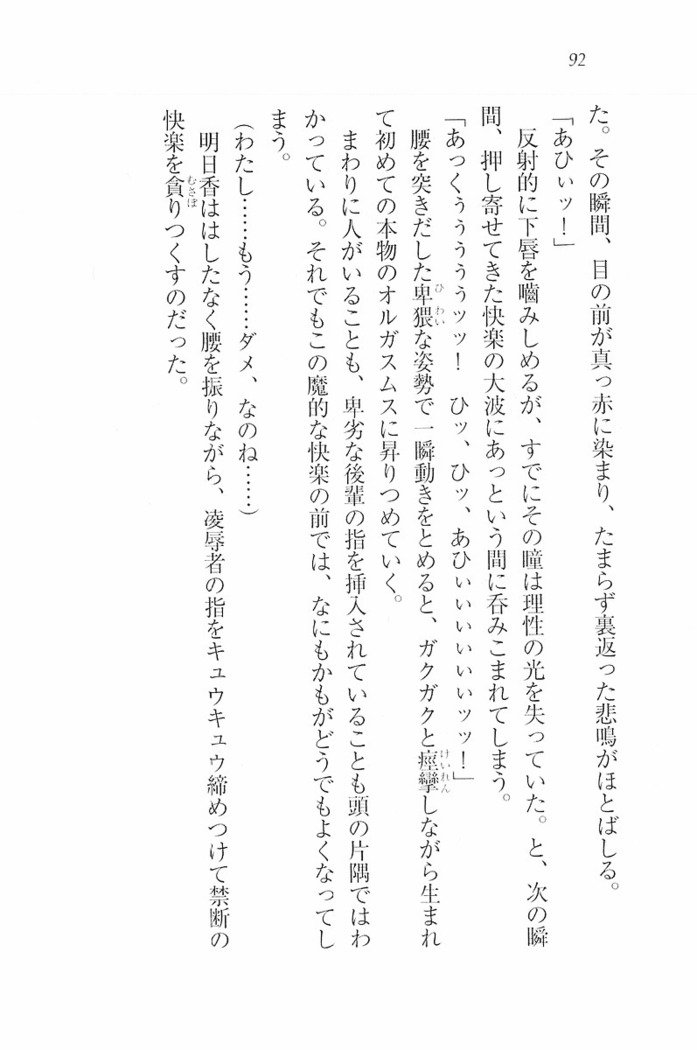 92
た。その瞬間、目の前が真っ赤に染まり、たまらず裏返った悲鳴がほとばしる。
「あひぃッ！」
反射的に下唇を嚙みしめるが、すでにその瞳は理性の光を失っていた。と、次の瞬
間、押し寄せてきた快楽の大波にあっという間に呑みこまれてしまう。
「あっくぅぅぅぅぅッッ！　ひッ、ひッ、あひぃぃぃぃぃぃッッ！」
腰を突きだした卑猥な姿勢で一瞬動きをとめると、ガクガクと痙攣しながら生まれ
て初めての本物のオルガスムスに昇りつめていく。
まわりに人がいることも、卑劣な後輩の指を挿入されていることも頭の片隅ではわ
かっている。それでもこの魔的な快楽の前では、なにもかもがどうでもよくなってし
まう。
（わたし……もう……ダメ、なのね……）
明日香ははしたなく腰を振りながら、凌辱者の指をキュウキュウ締めつけて禁断の
快楽を貪りつくすのだった。